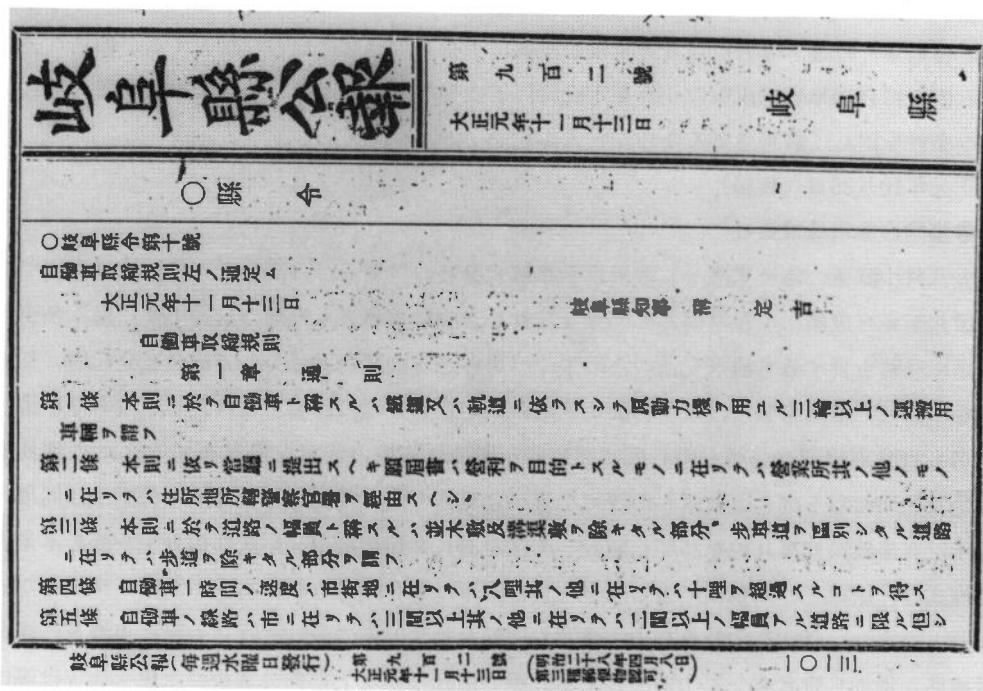 岐阜縣公報
第九百二號
大正元年十一月十三日
岐阜縣
〇縣令
〇岐阜縣令第十號
自働車取締規則左ノ通定ム
大正元年十一月十三日
岐阜縣知事 定吉
自働車取締規則
第一章 通則
第一條 本則ニ於テ自働車ト稱スルハ鐵道又ハ軌道ニ依ラスシテ原動力機ヲ用ユル三輪以上ノ運搬用
車輛ヲ謂フ
第二條 本則ニ依リ當廳ニ提出スヘキ願屆書ハ營利ヲ目的トスルモノニ在リテハ營業所其ノ他ノモノ
ニ在リテハ住所地所轄警察官署ヲ經由スヘシ
第三條 本則ニ於テ道路ノ幅員ト稱スルハ並木敷及溝渠敷ヲ除キタル部分、步車道ヲ區別シタル道路
ニ在リテハ步道ヲ除キタル部分ヲ謂フ
第四條 自働車一時間ノ速度ハ市街地ニ在リテハ八哩其ノ他ニ在リテハ十哩ヲ超過スルコトヲ得ス
第五條 自働車ノ線路ハ市ニ在リテハ三間以上其ノ他ニ在リテハ二間以上ノ幅員アル道路ニ限ル但シ
岐阜縣公報(每週水曜日發行)
第九百二號
大正元年十一月十三日
(明治二十八年四月八日
第三種郵便物認可)
一〇一三